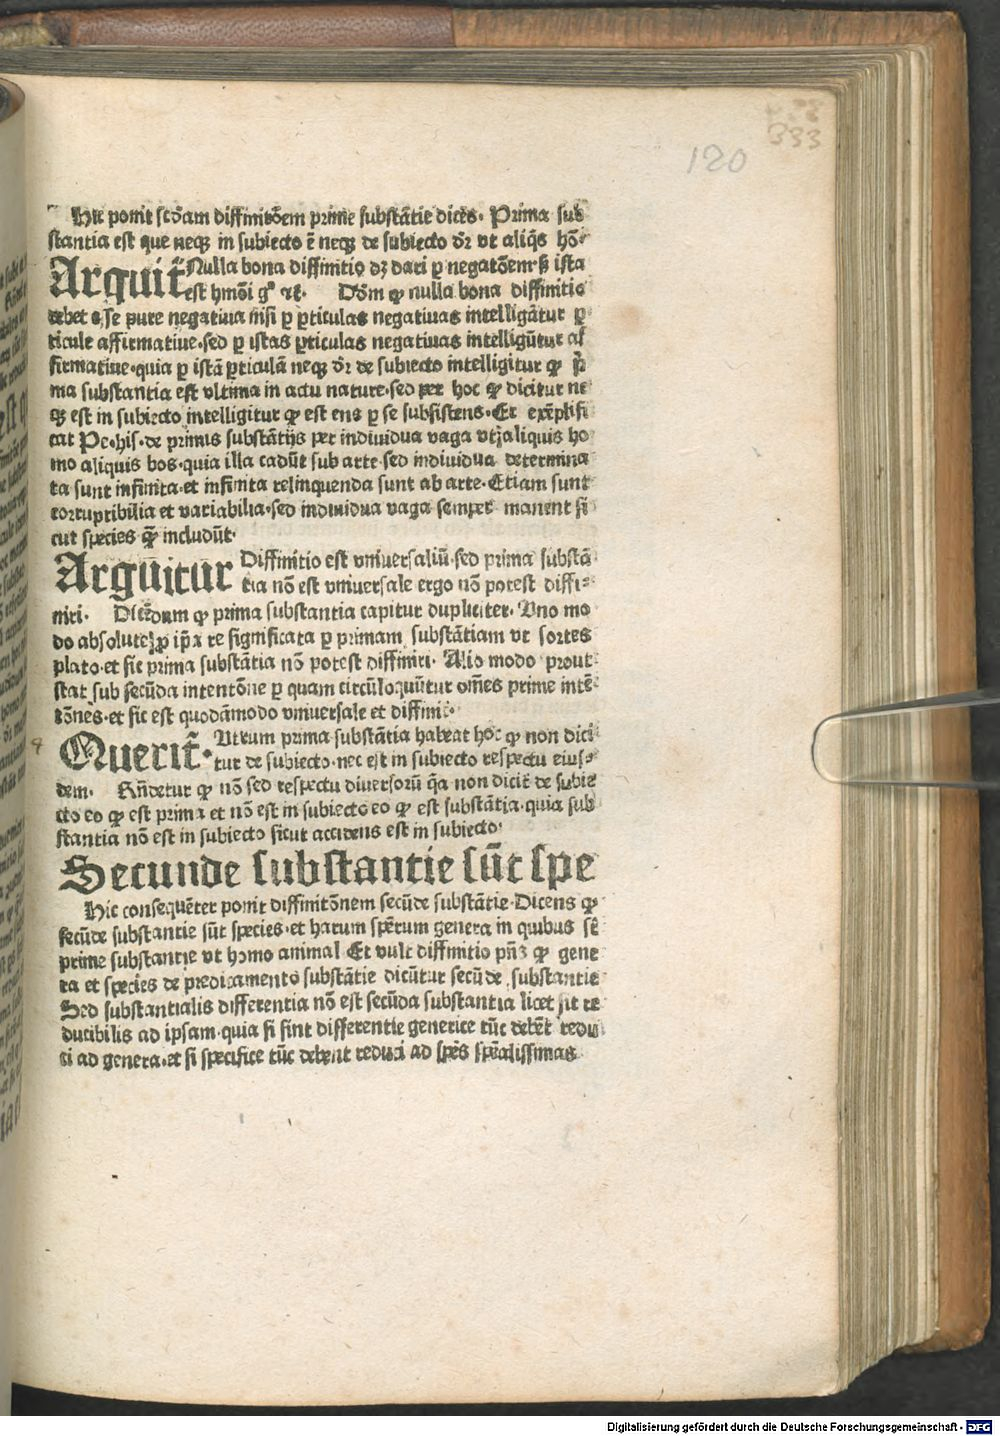 333
120
Hic ponit scd̄am diffinitōem prime substātie dicēs. Prima sub
stantia est que neqȝ in subiecto ē neqȝ de subiecto dr̄ vt aliq̄s hō
Arguit̄ Nulla bona diffinitio dȝ dari p negatōem sȝ ista
est hmōi gͦ ⁊c. Dd̄m ꝙ nulla bona diffinitio
debet esse pure negatiua nisi p ꝑticulas negatiuas intelligātur ꝑ
ticule affirmatiue.sed ꝑ istas ꝑticulas negatiuas intelligūtur af
firmatiue.quia ꝑ istā ꝑticulā neqȝ dr̄ de subiecto intelligitur ꝙ p̄
ma substantia est vltima in actu nature.sed per hoc ꝙ dicitur ne
qȝ est in subiecto intelligitur ꝙ est ens ꝑ se subsistens. Et exēplifi
cat Pe.his.de primis substātijs per indiuidua vaga vtȝ aliquis ho
mo aliquis bos.quia illa cadūt sub arte.sed indiuidua determina
ta sunt infinita.et infinita relinquenda sunt ab arte. Etiam sunt
corruptibilia et variabilia.sed indiuidua vaga semper manent si
cut species q̄ includūt.
Arguitur Diffinitio est vniuersaliū.sed prima substā
tia nō est vniuersale ergo nō potest diffi
niri. Dicēdum ꝙ prima substantia capitur dupliciter. Uno mo
do absolute ꝓ ip̄a re significata ꝑ primam substātiam vt sortes
plato.et sic prima substātia nō potest diffiniri. Alio modo prout
stat sub secūda intentōne ꝑ quam circūloquūtur om̄es prime intē
tōnes.et sic est quodāmodo vniuersale et diffinit.
Querit̄. Utrum prima substātia habeat hoc ꝙ non dici
tur de subiecto.nec est in subiecto respectu eius
dem. Rn̄detur ꝙ nō sed respectu diuersorū q̄a non dicit̄ de subie
cto eo ꝙ est prima et nō est in subiecto eo ꝙ est substātia.quia sub
stantia nō est in subiecto sicut accidens est in subiecto.
Secunde substantie sūt spe
Hic consequēter ponit diffinitōnem secūde substātie. Dicens ꝙ
secūde substantie sūt species.et harum spērum genera in quibus sē
prime substantie vt homo animal Et vult diffinitio pn̄s ꝙ gene
ra et species de predicamento substātie dicūtur secūde substantie
Sed substantialis differentia nō est secūda substantia licet sit re
ducibilis ad ipsam.quia si sint differentie generice tūc debēt redu
ci ad genera.et si specifice tūc debent reduci ad spēs spēalissimas
Digitalisierung gefördert durch die Deutsche Forschungsgemeinschaft - DFG